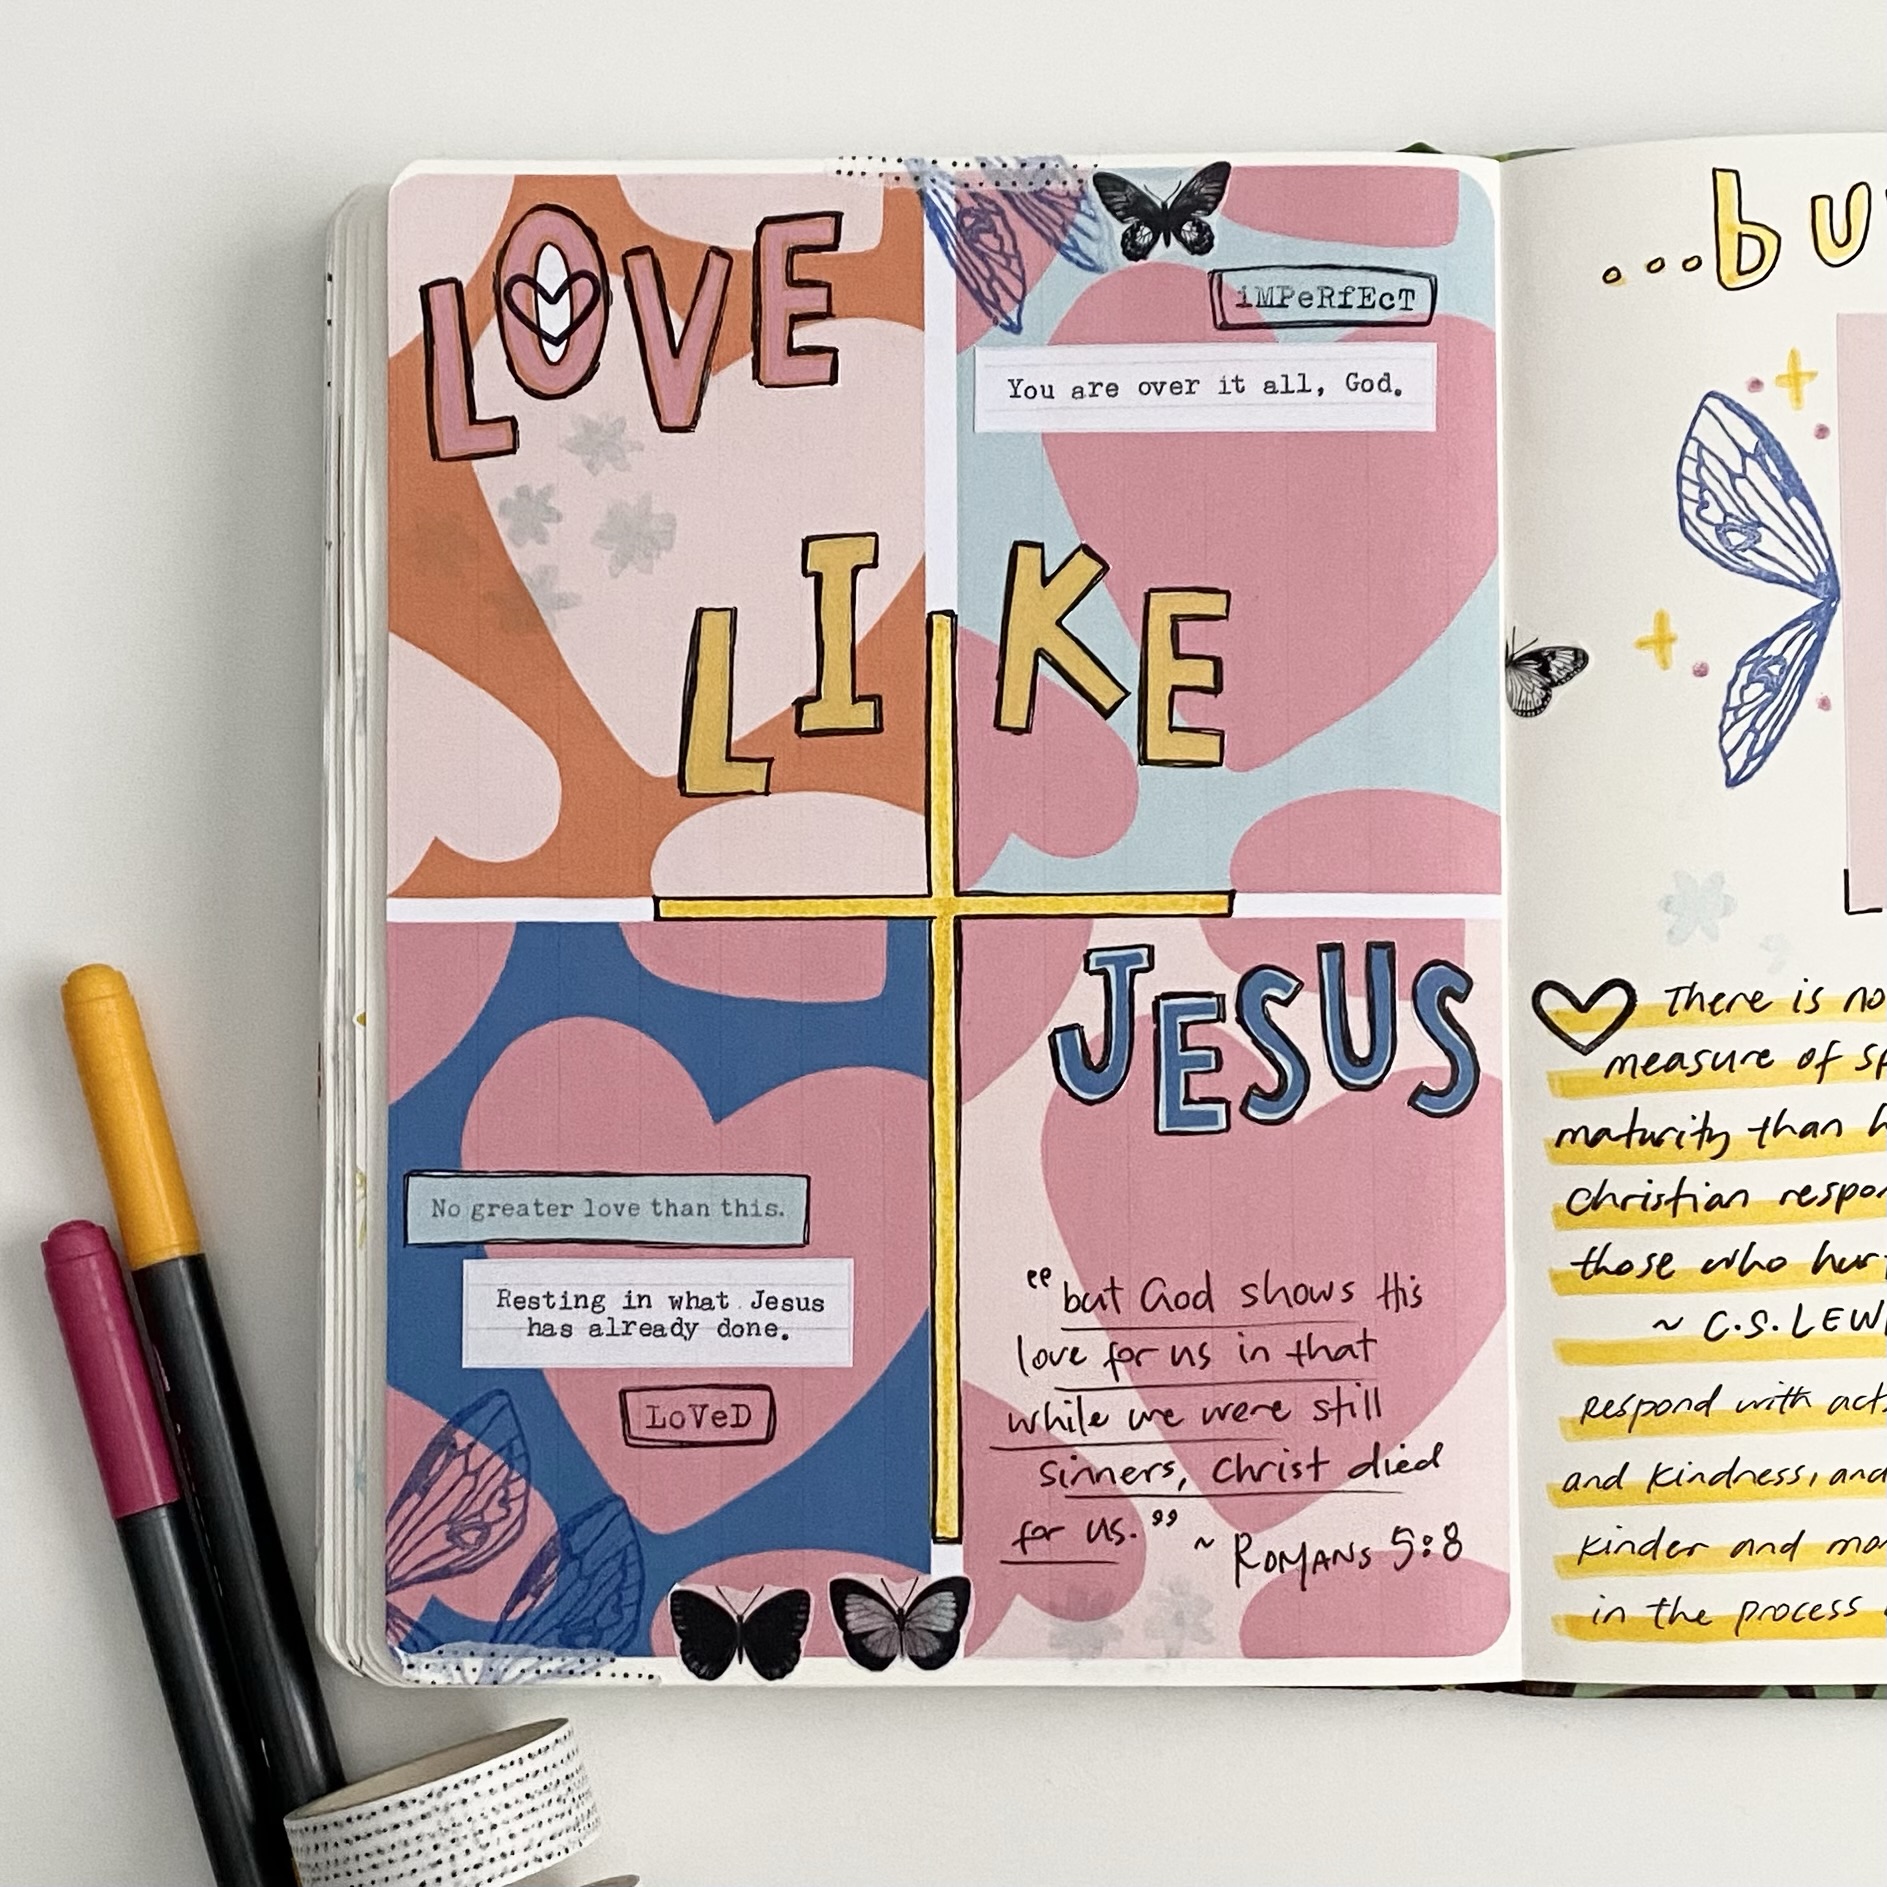 LOVE
LIKE
JESUS
iMPeRfEcT
You are over it all, God.
No greater love than this.
Resting in what Jesus
has already done.
LoVeD
"but God shows His
love for us in that
while we were still
sinners, Christ died
for us." ~ ROMANS 5:8
...bu
There is no
measure of
maturity than
Christian
those who
~ C.S.LEW
respond with
and kindness, and
kinder and
in the process